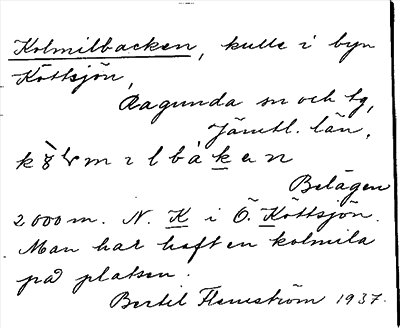 Kolmilbacken, kulle i byn
Köttsjön,
Ragunda sn och tg,
Jämtl. län,
mɪlbàkan
Belägen
2000 m. N. K i Ö. Köttsjön.
Man har haft en kolmila
på platsen.
Bertil Flemström 1937.